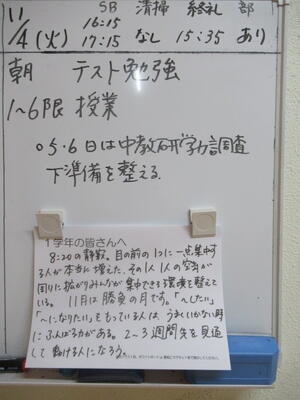 11/4(火) SB 16:15 17:15 清掃 なし 終礼 15:35 部 あり
朝 テスト勉強
1~6限 授業
○5・6日は中教研学力調査
下準備を整える.
1学年の皆さんへ
8:20の静寂。目の前の1つに一点集中す
る人が本当に増えた。その1人1人の空気が
周りに拡がりみんなが集中できる環境を整えて
いる。 11月は勝負の月です。「〜したい」
「〜になりたい」をもっている人は、うまくいかない時
にふんばる力がある。2~3週間先を見通
して動ける人になろう。